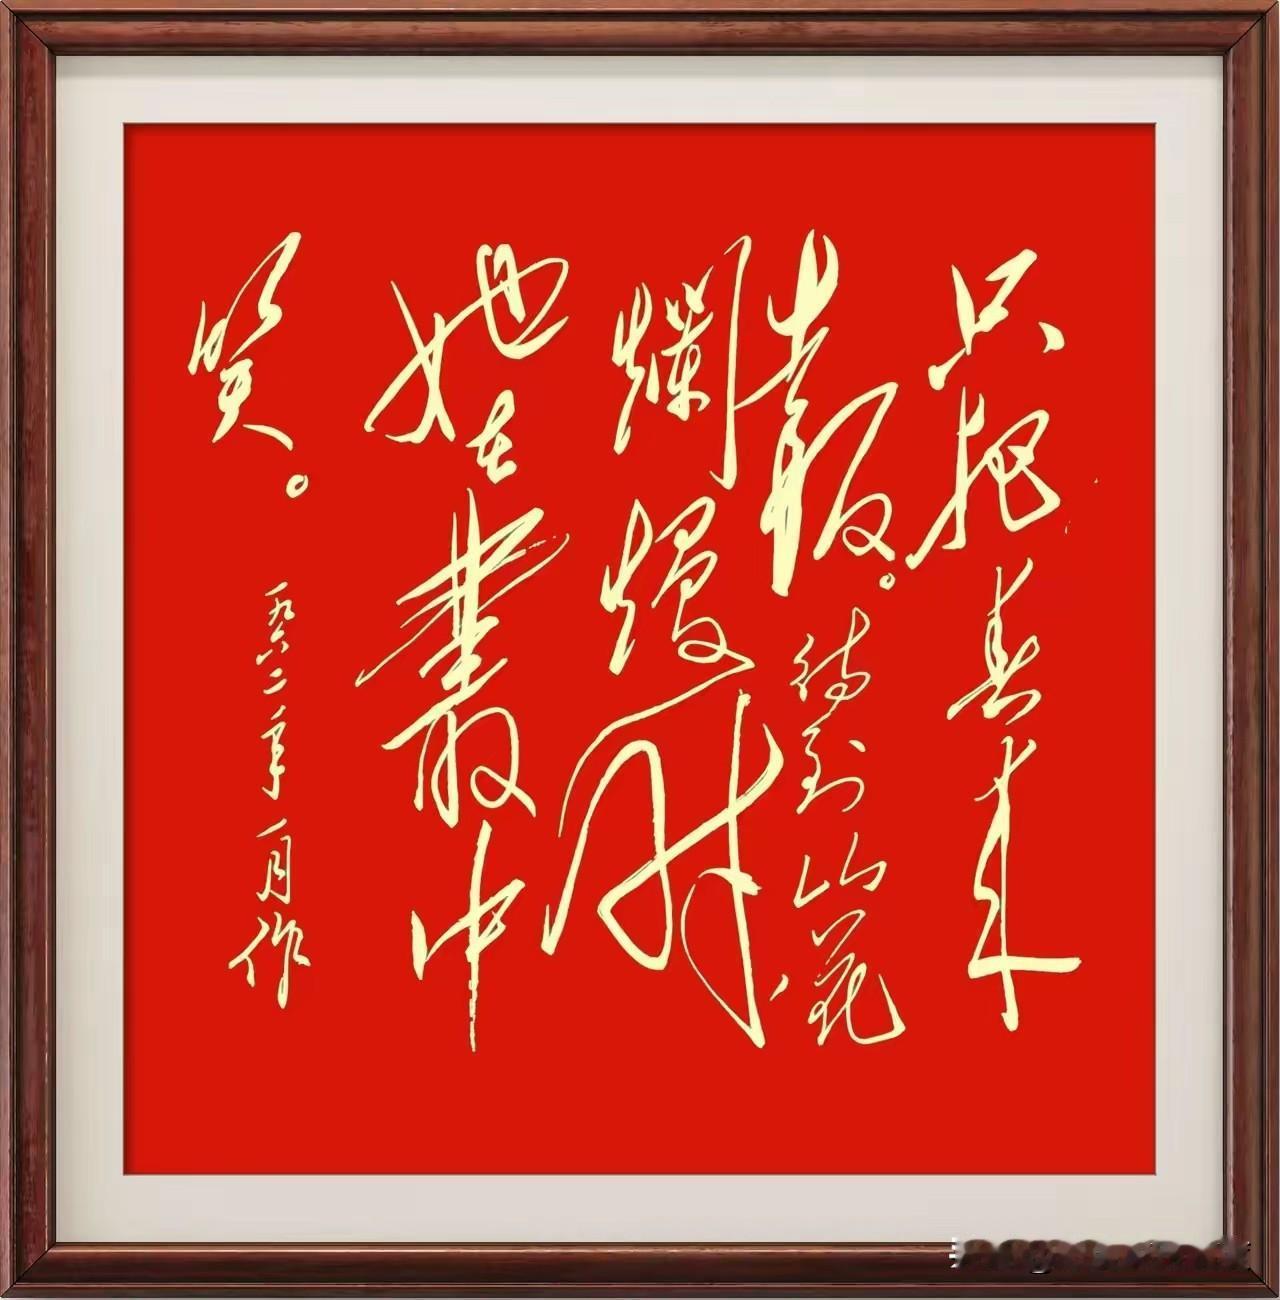 只把春来
報。待到山花
爛熳时,
她在叢中
笑。
一九六二年一月作